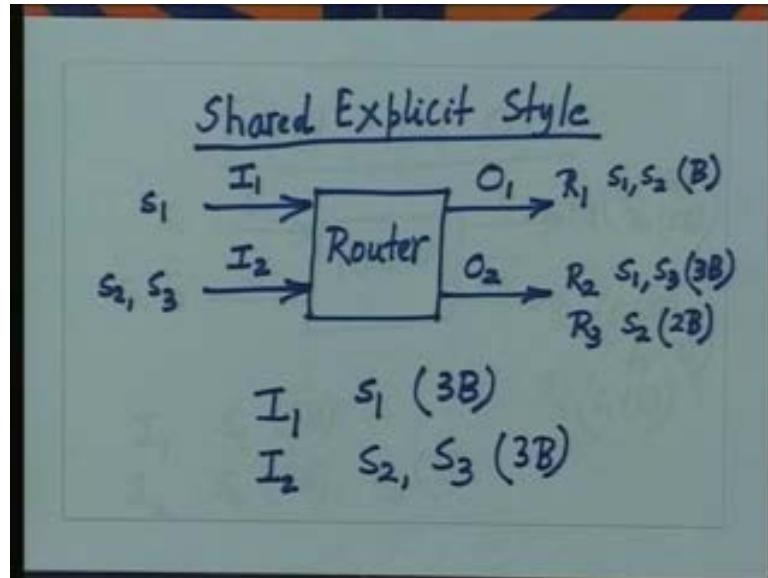 Shared Explicit Style
S1 I1 Router O1 R1 S1, S2 (B)
S2, S3 I2 O2 R2 S1, S3 (3B)
R3 S2 (2B)
I1 S1 (3B)
I2 S2, S3 (3B)